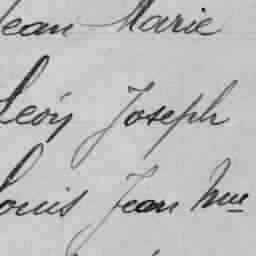 Jean Marie
Léon Joseph
Louis Jean Mie